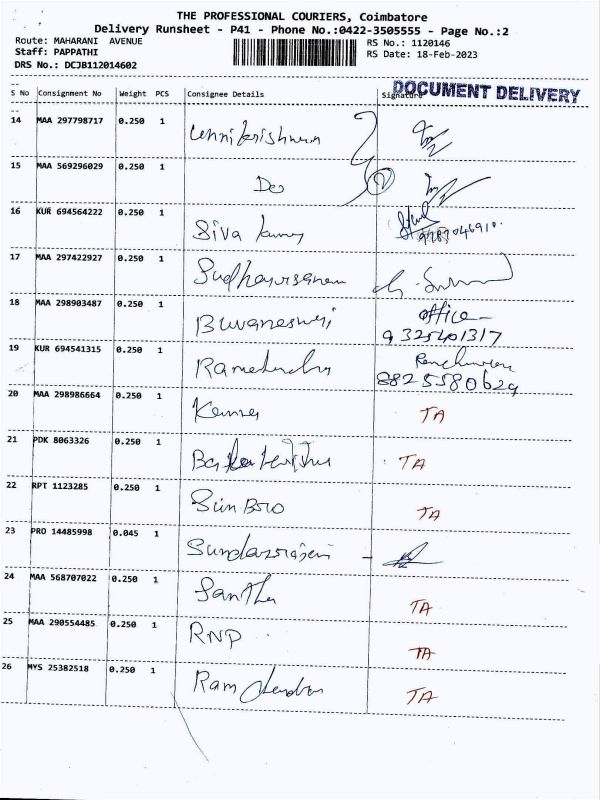 THE PROFESSIONAL COURIERS, Coimbatore
Delivery Runsheet - P41 - Phone No.:0422-3505555 - Page No.:2
Route: MAHARANI AVENUE
Staff: PAPPATHI
DRS No.: DCJB112014602
RS No.: 1120146
RS Date: 18-Feb-2023
S No Consignment No Weight PCS Consignee Details Signature
DOCUMENT DELIVERY
14 MAA 297798717 0.250 1 Unnikrishnan
15 MAA 569296029 0.250 1 Do 2
16 KUR 694564222 0.250 1 Siva 9787046910.
17 MAA 297422927 0.250 1
18 MAA 298903487 0.250 1 Buvaneswari office
9325401317
19 KUR 694541315 0.250 1
8825580629
20 MAA 298986664 0.250 1 TA
21 PDK 8063326 0.250 1 TA
22 RPT 1123285 0.250 1 Sun Bro TA
23 PRO 14485998 0.045 1
24 MAA 568707022 0.250 1 Santha TA
25 MAA 290554485 0.250 1 RNP TA
26 MYS 25382518 0.250 1 Ram TA